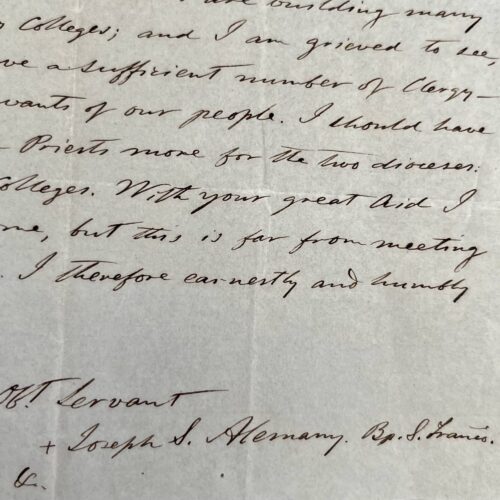 are building many
Colleges; and I am grieved to see,
ve a sufficient number of Clergy-
vants of our people. I should have
Priests more for the two dioceses:
Colleges. With your great Aid I
me, but this is far from meeting
. I therefore earnestly and humbly
Obt. Servant
+ Joseph S. Alemany. Bp. S. Franco.
&.